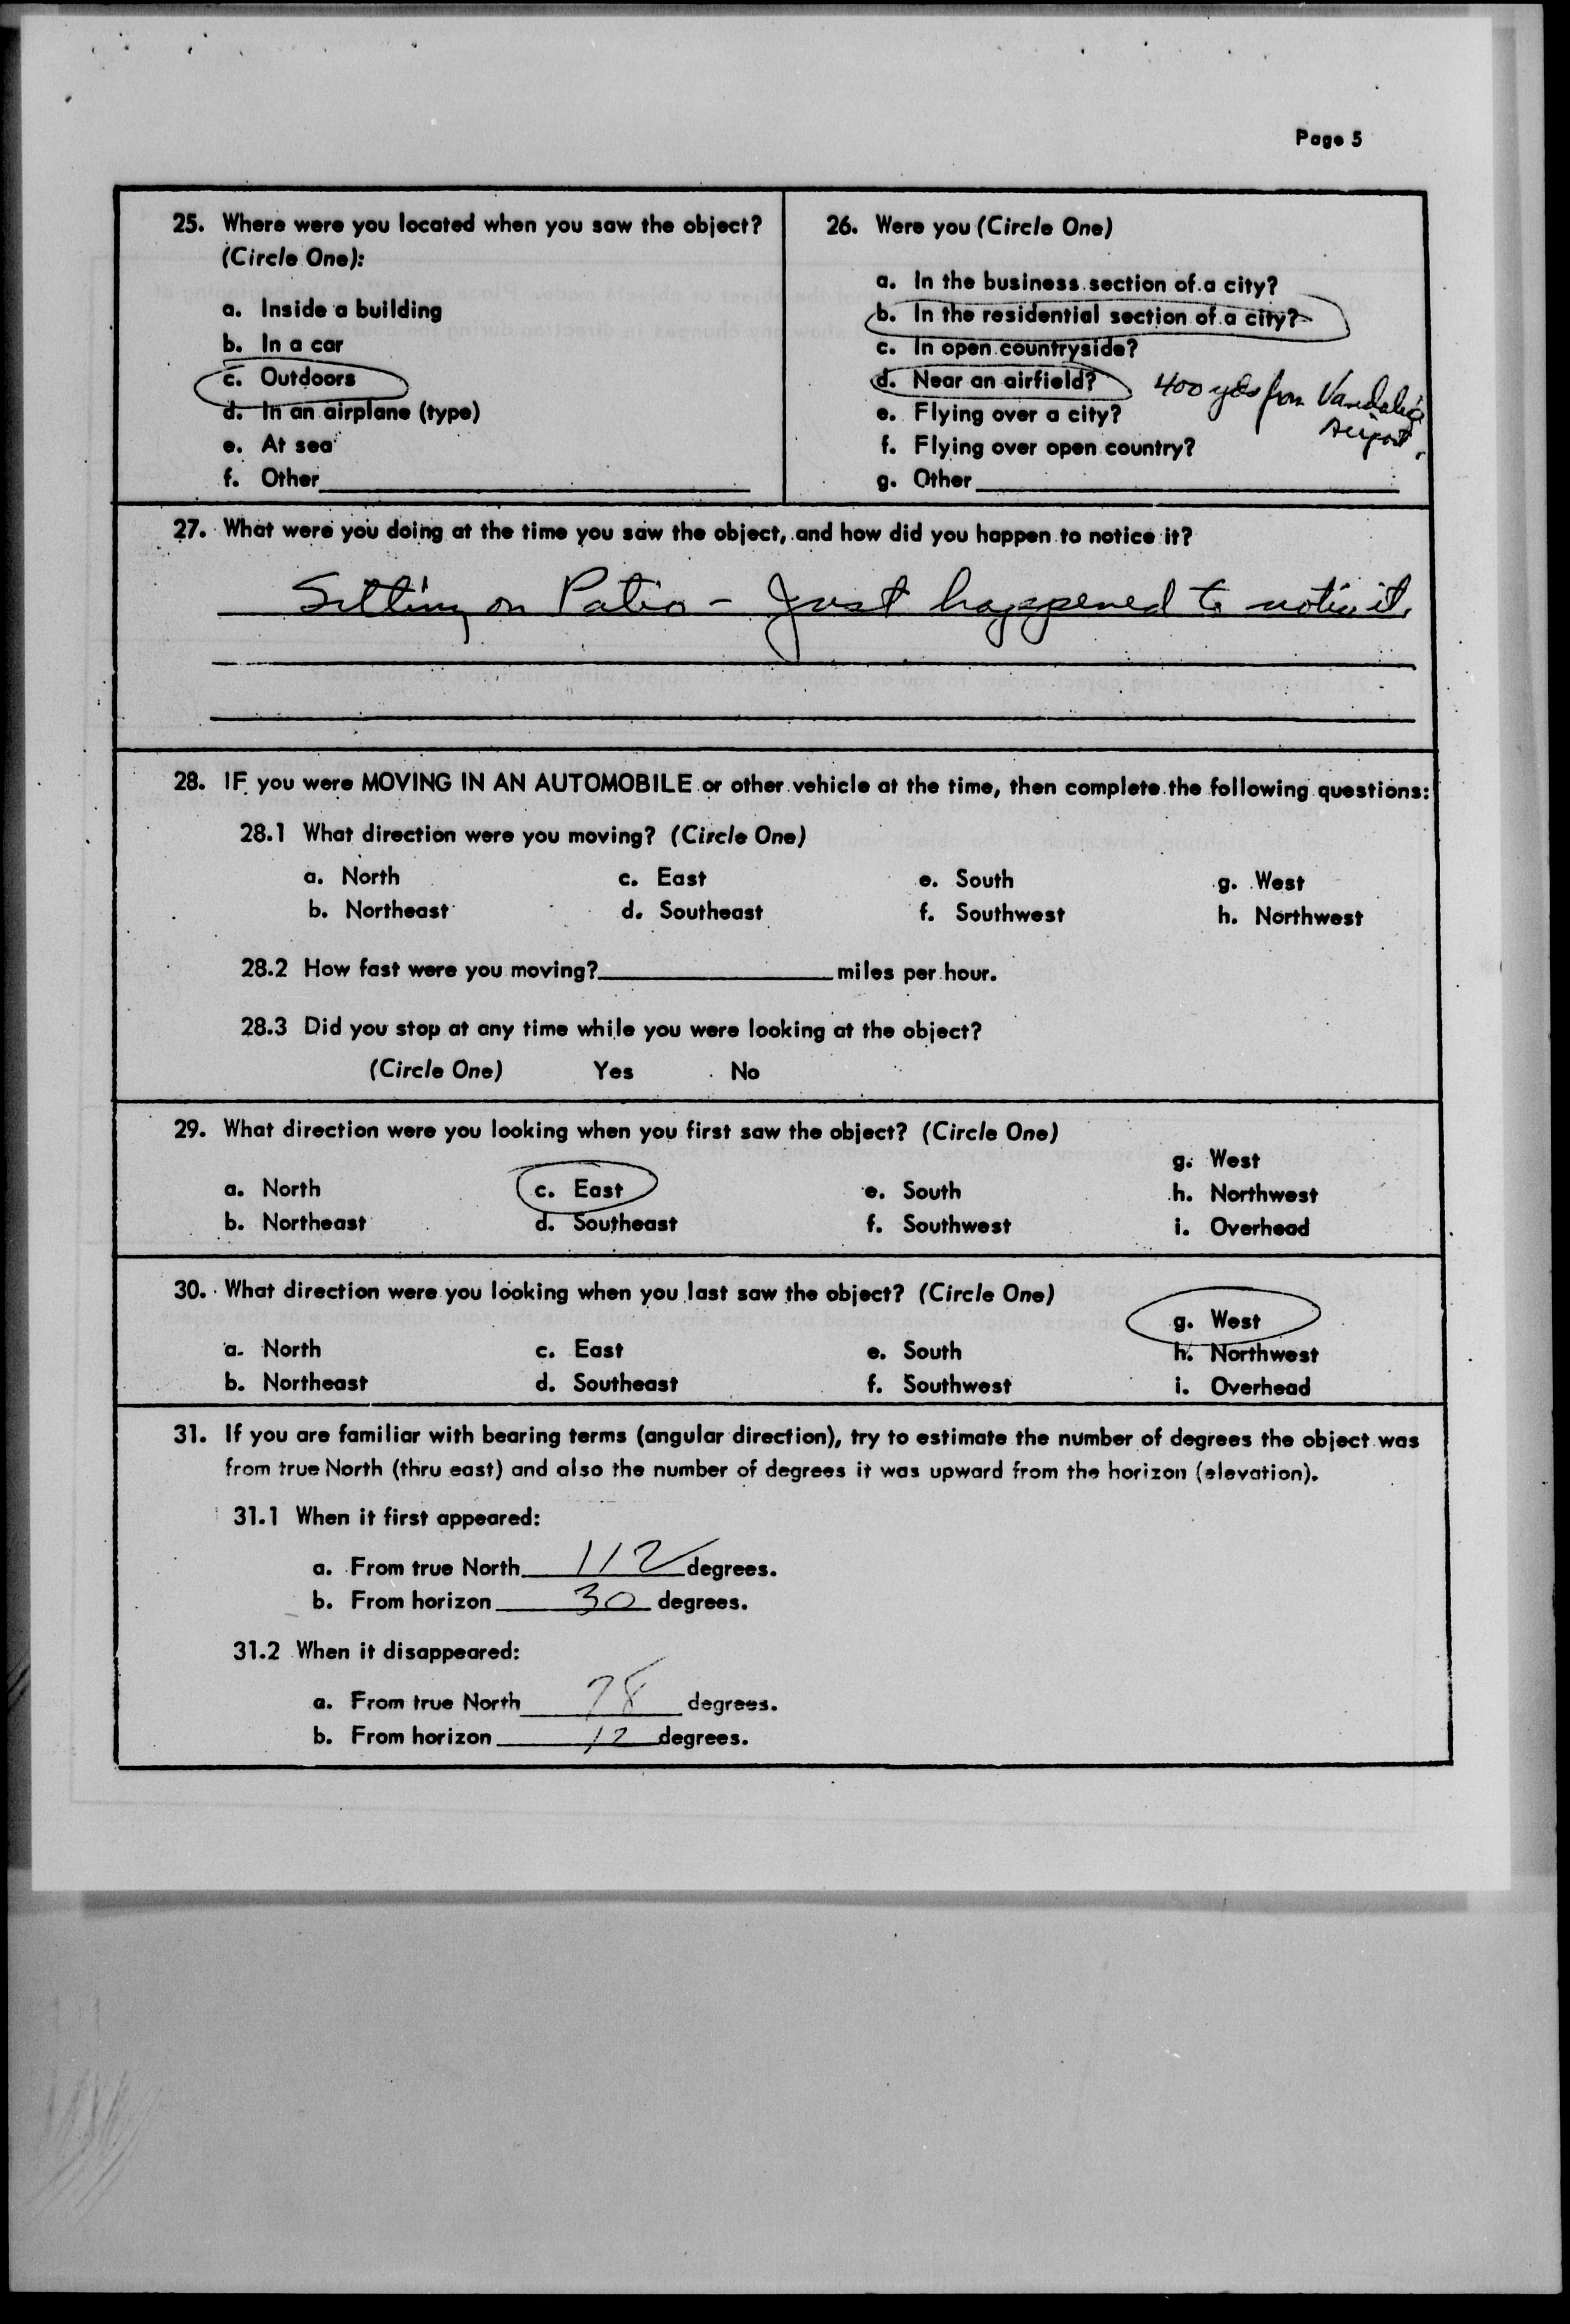 Page 5
25. Where were you located when you saw the object?
(Circle One):
a. Inside a building
b. In a car
c. Outdoors
d. In an airplane (type)
e. At sea
f. Other
26. Were you (Circle One)
a. In the business section of a city?
b. In the residential section of a city?
c. In open countryside?
d. Near an airfield? 400 yds from Vandalia
Airport.
e. Flying over a city?
f. Flying over open country?
g. Other
27. What were you doing at the time you saw the object, and how did you happen to notice it?
Sitting on Patio - Just happened to notice it.
28. IF you were MOVING IN AN AUTOMOBILE or other vehicle at the time, then complete the following questions:
28.1 What direction were you moving? (Circle One)
a. North c. East e. South g. West
b. Northeast d. Southeast f. Southwest h. Northwest
28.2 How fast were you moving? miles per hour.
28.3 Did you stop at any time while you were looking at the object?
(Circle One) Yes No
29. What direction were you looking when you first saw the object? (Circle One)
g. West
a. North c. East e. South h. Northwest
b. Northeast d. Southeast f. Southwest i. Overhead
30. What direction were you looking when you last saw the object? (Circle One)
g. West
a. North c. East e. South h. Northwest
b. Northeast d. Southeast f. Southwest i. Overhead
31. If you are familiar with bearing terms (angular direction), try to estimate the number of degrees the object was
from true North (thru east) and also the number of degrees it was upward from the horizon (elevation).
31.1 When it first appeared:
a. From true North 112 degrees.
b. From horizon 30 degrees.
31.2 When it disappeared:
a. From true North 78 degrees.
b. From horizon 12 degrees.